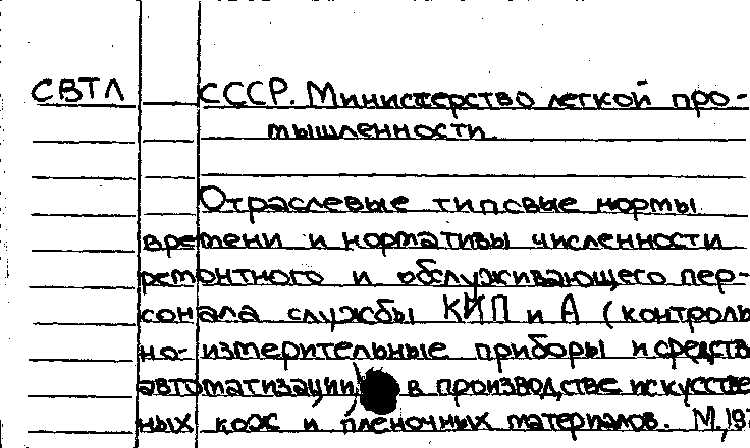 СВТЛ СССР. Министерство легкой про-
мышленности.
Отраслевые типовые нормы
времени и нормативы численности
ремонтного и обслуживающего пер-
сонала службы КИП и А (контроль
но-измерительные приборы и средств
автоматизации) в производстве искусстве
ных кож и пленочных материалов. М.,197